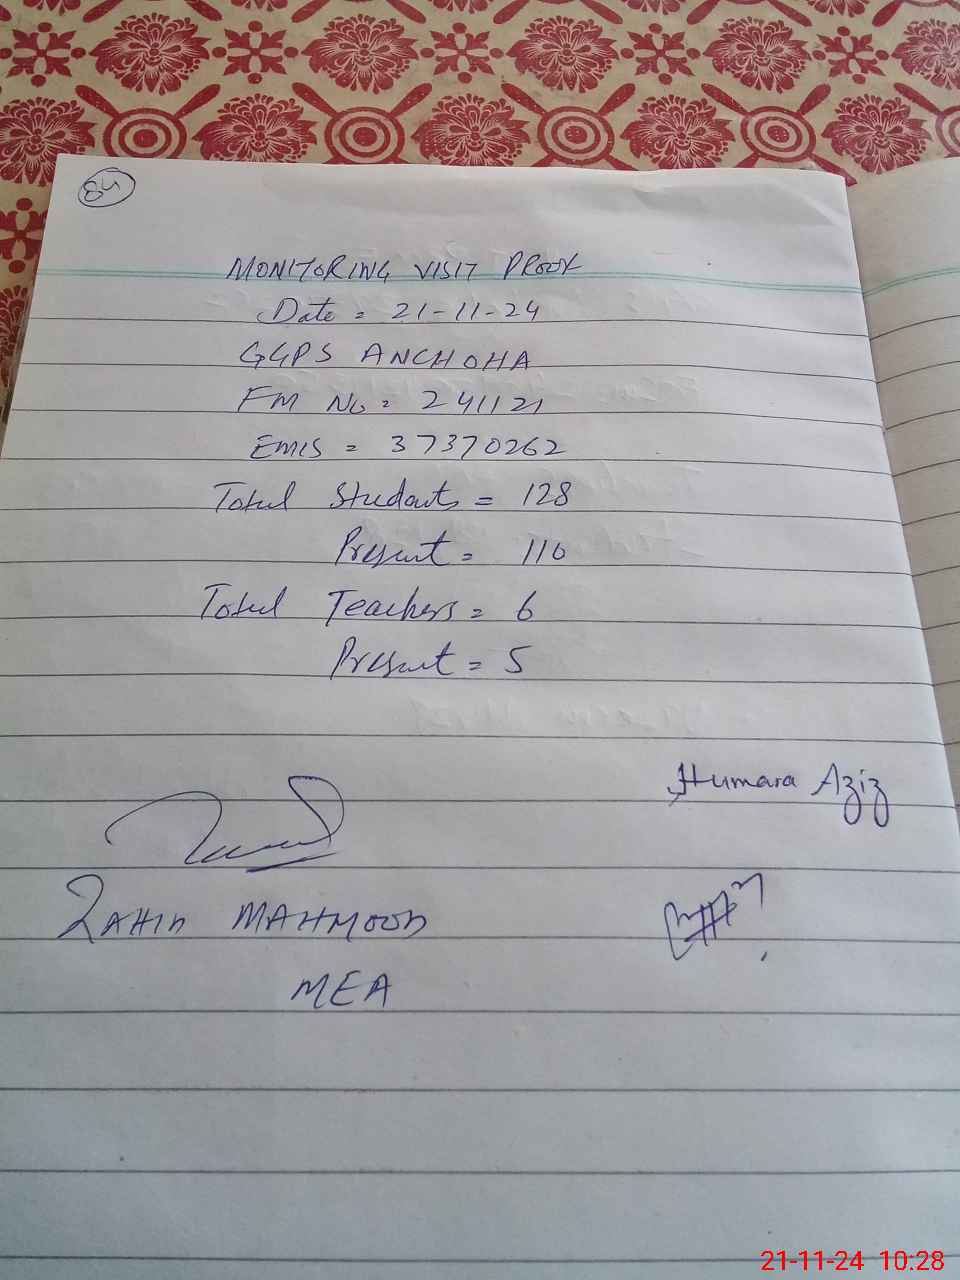 84
MONITORING VISIT PROOF
Date = 21-11-24
GGPS ANCHOHA
FM No = 241121
EMIS = 37370262
Total Students = 128
Present = 110
Total Teachers = 6
Present = 5
Humara Aziz
MAHMOOD
MEA
21-11-24 10:28